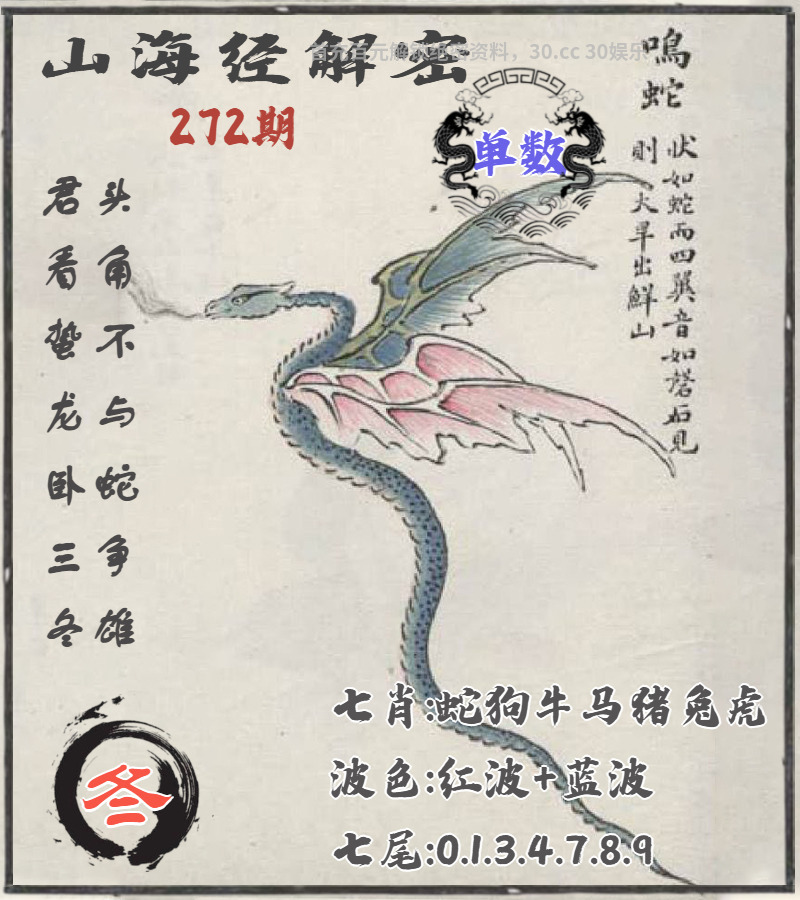 山海经解密
首充百元解锁绝密资料，30.cc 30娱乐
272期
单数
鳴蛇
状如蛇而四翼音如磬石見
則大旱出鮮山
头角不与蛇争雄
君看蛰龙卧三冬
七肖:蛇狗牛马猪兔虎
波色:红波+蓝波
七尾:0.1.3.4.7.8.9
冬